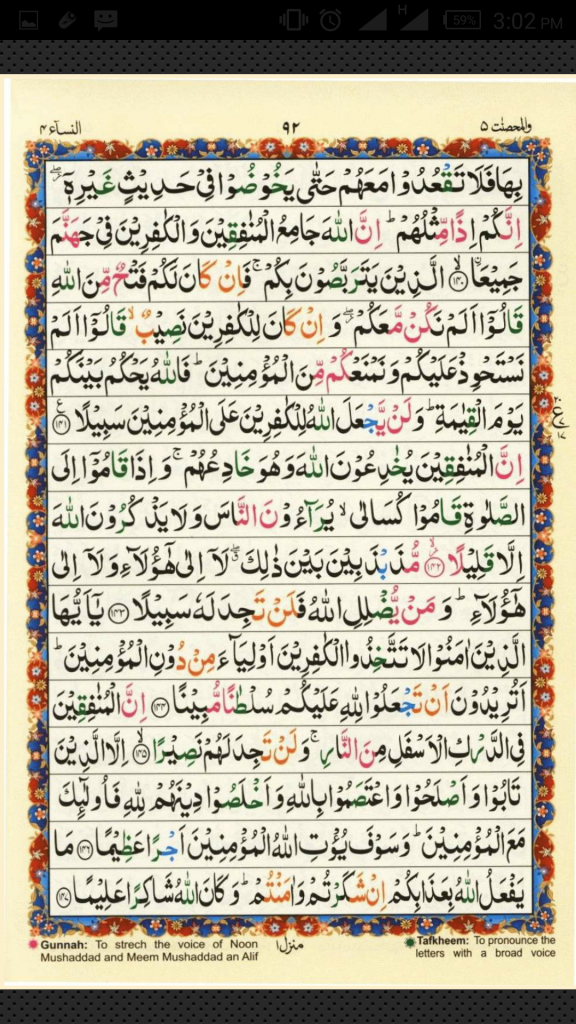 H 59% 3:02 PM
والمحصنٰت ٥ ٩٢ النسآء ٤
بِهَا فَلَا تَقْعُدُوْا مَعَهُمْ حَتّٰى يَخُوْضُوْا فِيْ حَدِيْثٍ غَيْرِهٖۤ ۖ
اِنَّكُمْ اِذًا مِّثْلُهُمْ ؕ اِنَّ اللّٰهَ جَامِعُ الْمُنٰفِقِيْنَ وَالْكٰفِرِيْنَ فِيْ جَهَنَّمَ
جَمِيْعًا ۙ ﴿١٤٠﴾ الَّذِيْنَ يَتَرَبَّصُوْنَ بِكُمْ ۚ فَاِنْ كَانَ لَكُمْ فَتْحٌ مِّنَ اللّٰهِ
قَالُوْۤا اَلَمْ نَكُنْ مَّعَكُمْ ۖ وَ اِنْ كَانَ لِلْكٰفِرِيْنَ نَصِيْبٌ ۙ قَالُوْۤا اَلَمْ
نَسْتَحْوِذْ عَلَيْكُمْ وَنَمْنَعْكُمْ مِّنَ الْمُؤْمِنِيْنَ ؕ فَاللّٰهُ يَحْكُمُ بَيْنَكُمْ
يَوْمَ الْقِيٰمَةِ ؕ وَلَنْ يَّجْعَلَ اللّٰهُ لِلْكٰفِرِيْنَ عَلَى الْمُؤْمِنِيْنَ سَبِيْلًا ﴿١٤١﴾ ع
اِنَّ الْمُنٰفِقِيْنَ يُخٰدِعُوْنَ اللّٰهَ وَهُوَ خَادِعُهُمْ ۚ وَاِذَا قَامُوْۤا اِلَى
الصَّلٰوةِ قَامُوْا كُسَالٰى ۙ يُرَآءُوْنَ النَّاسَ وَلَا يَذْكُرُوْنَ اللّٰهَ
اِلَّا قَلِيْلًا ﴿١٤٢﴾ مُّذَبْذَبِيْنَ بَيْنَ ذٰلِكَ ۖ لَاۤ اِلٰى هٰۤؤُلَآءِ وَلَاۤ اِلٰى
هٰۤؤُلَآءِ ؕ وَ مَنْ يُّضْلِلِ اللّٰهُ فَلَنْ تَجِدَ لَهٗ سَبِيْلًا ﴿١٤٣﴾ يٰۤاَيُّهَا
الَّذِيْنَ اٰمَنُوْا لَا تَتَّخِذُوا الْكٰفِرِيْنَ اَوْلِيَآءَ مِنْ دُوْنِ الْمُؤْمِنِيْنَ ؕ
اَتُرِيْدُوْنَ اَنْ تَجْعَلُوْا لِلّٰهِ عَلَيْكُمْ سُلْطٰنًا مُّبِيْنًا ﴿١٤٤﴾ اِنَّ الْمُنٰفِقِيْنَ
فِي الدَّرْكِ الْاَسْفَلِ مِنَ النَّارِ ۚ وَلَنْ تَجِدَ لَهُمْ نَصِيْرًا ﴿١٤٥﴾ اِلَّا الَّذِيْنَ
تَابُوْا وَاَصْلَحُوْا وَاعْتَصَمُوْا بِاللّٰهِ وَاَخْلَصُوْا دِيْنَهُمْ لِلّٰهِ فَاُولٰٓئِكَ
مَعَ الْمُؤْمِنِيْنَ ؕ وَسَوْفَ يُؤْتِ اللّٰهُ الْمُؤْمِنِيْنَ اَجْرًا عَظِيْمًا ﴿١٤٦﴾ مَا
يَفْعَلُ اللّٰهُ بِعَذَابِكُمْ اِنْ شَكَرْتُمْ وَاٰمَنْتُمْ ؕ وَكَانَ اللّٰهُ شَاكِرًا عَلِيْمًا ﴿١٤٧﴾
منزل١
Gunnah: To strech the voice of Noon
Mushaddad and Meem Mushaddad an Alif
Tafkheem: To pronounce the
letters with a broad voice